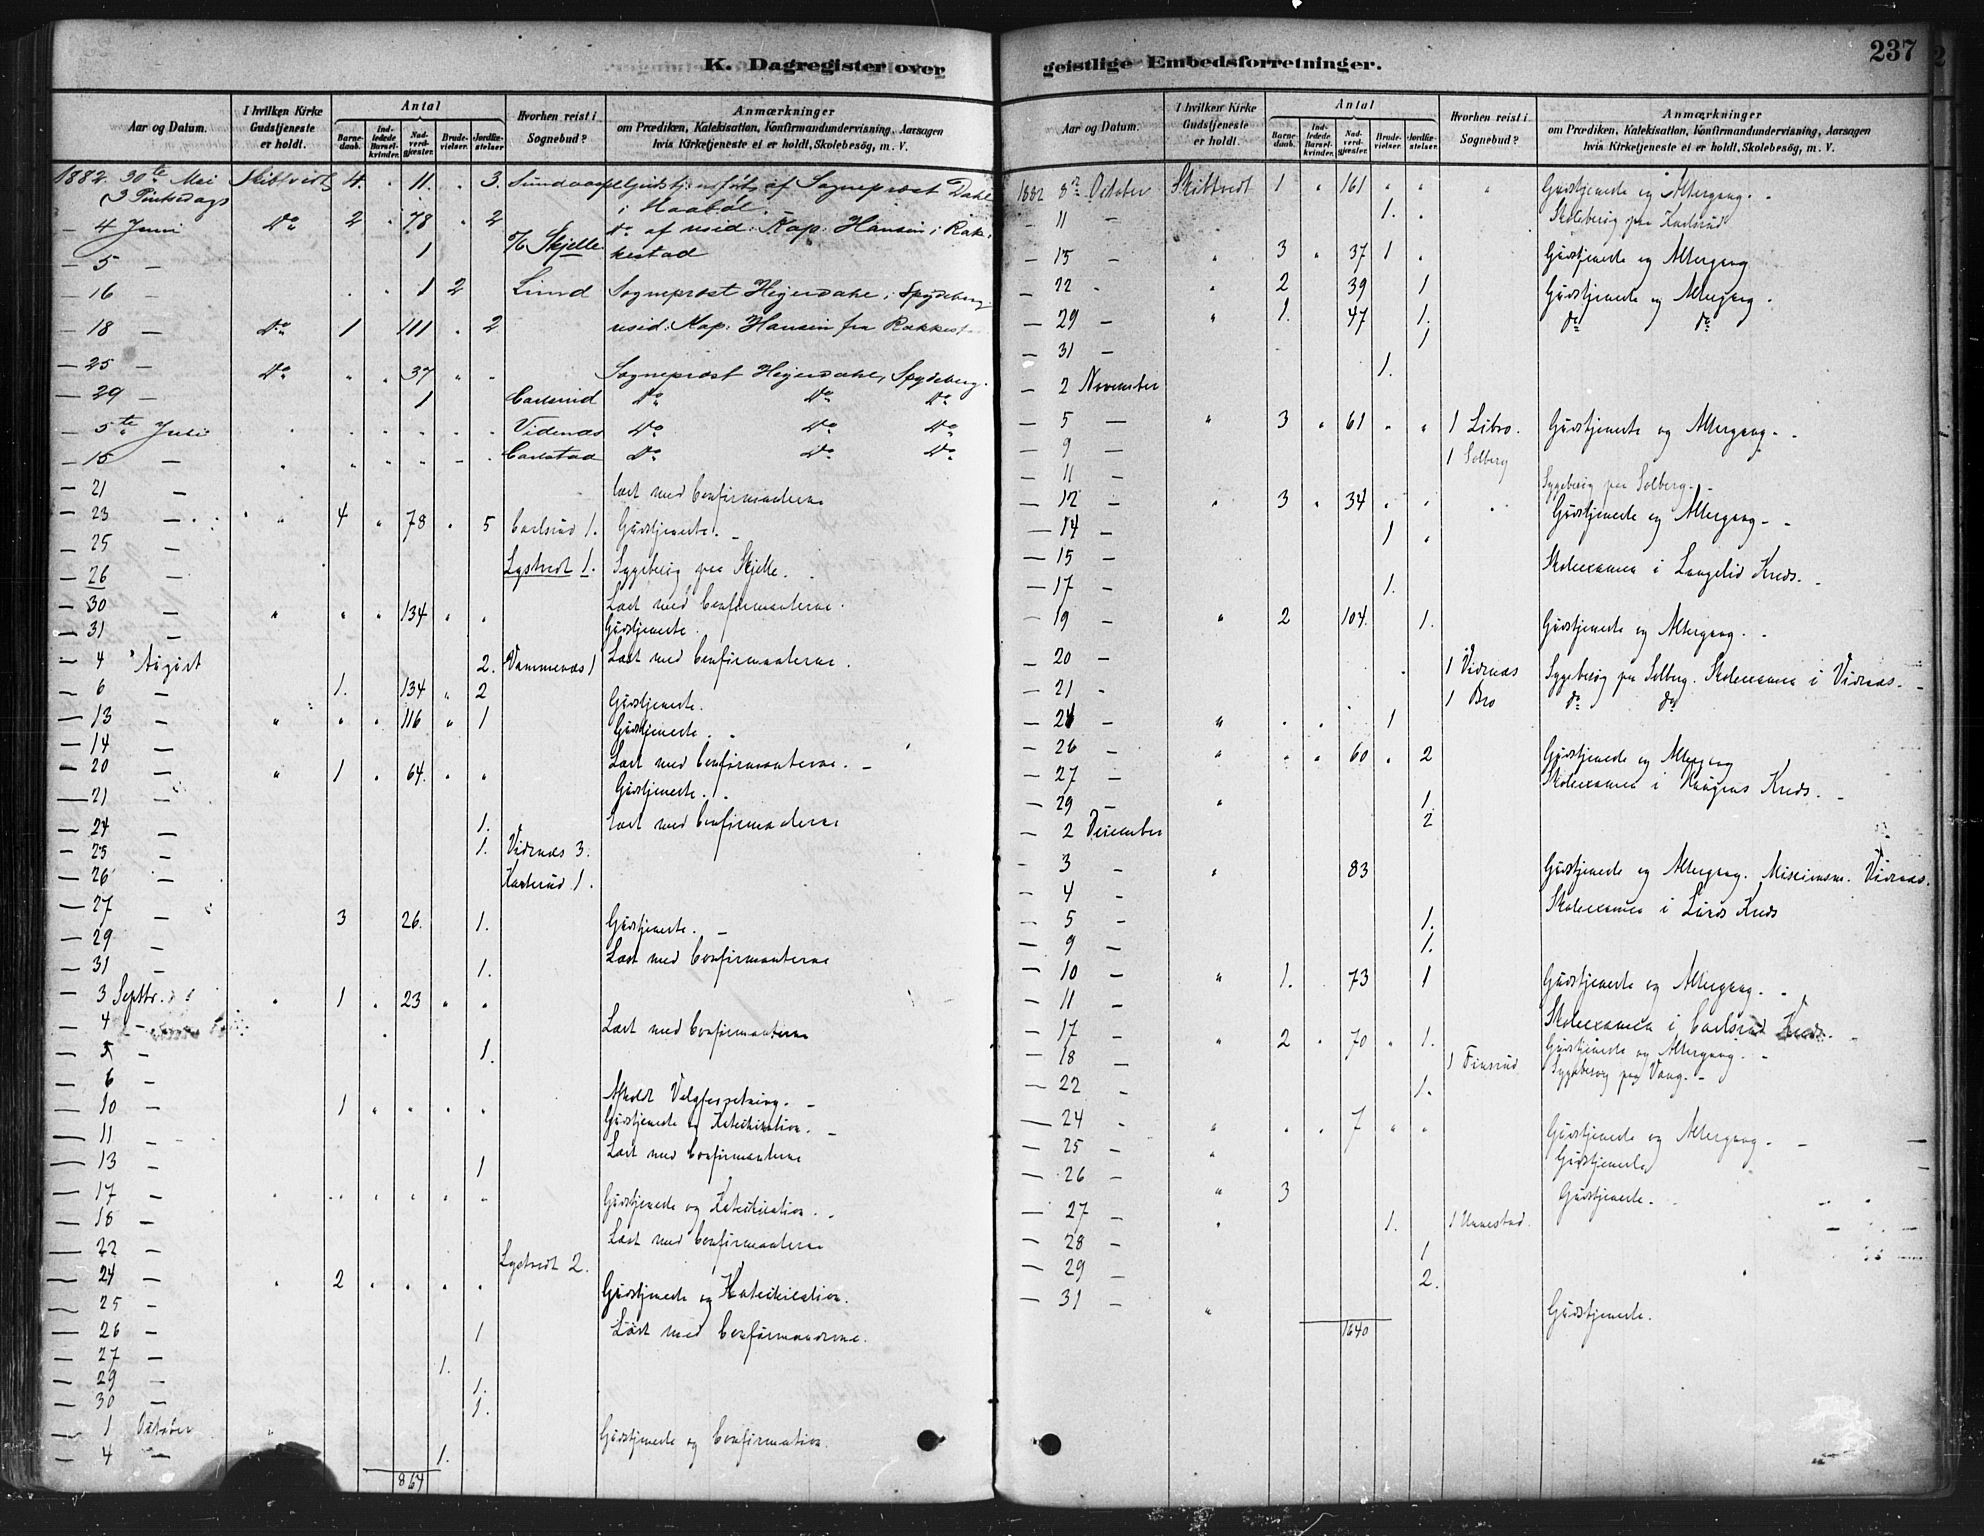 K. Dagregister over
Aar og Datum.
I hvilken Kirke Gudstjeneste er holdt.
Antal
Barne-daab.
Ind-ledede Barsel-kvinder.
Nad-verd-gjæster.
Brude-vielser.
Jordfæ-stelser
Hvorhen reist i Sognebud?
Anmærkninger
om Prædiken, Katekisation, Konfirmandundervisning, Aarsagen
hvis Kirketjeneste ei er holdt, Skolebesøg, m. V.
1882. 30te Mai Skibtvedt 4 " 11. " 3. Gudstj. af Sogneprost Dahl
3 Pintsedags i Haabøl.
— 4 Juni Do 2 " 78 " 2 Do af resid: Kap: Hansen i Rak-
— 5 — 1 5/6 Skjelle kestad
— 16 — 1 2 Lund Sogneprest Heyerdahl, Spydeberg
— 18 — Do 1 111 2 resid: Kap: Hansen fra Rakkest
— 25 — Do " " 37 " " Sogneprost Heyerdahl, Spydeberg.
— 29 — 1 Carlsrud Do Do Do
— 5te Juli Videnæs Do Do Do
— 15 — Carlstad Do Do Do
— 21 — læst med Confirmanterne
— 23 — " 4 " 78 " 5 Carlsrud 1. Gudstjeneste. —
— 25 —
— 26 — Lystvedt 1. Sygebesøg paa Skjelle.
— 30 — " " " 134 " " Læst med Confirmanterne.
— 31 — Gudstjeneste.
— 4 August 2. Vammenæs 1 Læst med Confirmanterne.
— 6 — 1. 134 " 2 Gudstjeneste.
— 13 — " " " 116 " 1 Gudstjeneste.
— 14 — Læst med Confirmanterne. —
— 20 — " 1 " 64. " " Gudstjeneste.
— 21 — læst med Confirmanterne
— 24 — 1.
— 25 — 1. Vidnæs 3.
— 26 — Karlsrud 1.
— 27 — 3 26. 1. Gudstjeneste. —
— 29 — Læst med Confirmanterne
— 31 — 1.
— 3 Septbr. " 1 " 23 " "
— 4 — Læst med Confirmanterne
— 5 — 1.
— 6 — Afholdt Valgforretning. —
— 10 — 1 " " " " Gudstjeneste og Katechisation. —
— 11 — Læst med Confirmanterne
— 13 — 1
— 17 — " " " " " " Gudstjeneste og Katechisation.
— 18 — Læst med Confirmanterne
— 22 — Lystvedt 2.
— 24 — " 2 " " " " Gudstjeneste og Katechisation.
— 25 —
— 26 — 1 Læst med Confirmanderne.
— 27 — 1.
— 29 — 1.
— 30 — 1.
— 1 October " Gudstjeneste og Confirmation.
— 4 — 1.
864
geistlige Embedsforretninger.
237
Aar og Datum.
I hvilken Kirke Gudstjeneste er holdt.
Antal
Barne-daab.
Ind-ledede Barsel-kvinder.
Nad-verd-gjæster.
Brude-vielser.
Jordfæ-stelser.
Hvorhen reist i Sognebud?
Anmærkninger
om Prædiken, Katekisation, Konfirmandundervisning, Aarsagen
hvis Kirketjeneste ei er holdt, Skolebesøg, m. V.
1882 8de October Skibtvedt 1 " 161 " " " Gudstjeneste og Altergang.
— 11 — 1. " Skolebesøg paa Karlsrud
— 15 — " 3 " 37 1 " Gudstjeneste og Altergang
— 22 " " 2 39 1 Gudstjeneste og Altergang.
— 29 — " 1. 47 1. do do
— 31 — 1
— 2 November 1.
— 5 — " 3 " 61 " " 1 Libro. Gudstjeneste og Altergang.
— 9 — 1 Solberg
— 11 — Sygebesøg paa Solberg.
— 12 — " 3 " 34 " " Gudstjeneste og Altergang.
— 14 — 1 "
— 15 — Skoleexamen i Langelid Kreds. —
— 17 — 1.
— 19 — " 2 104. 1. Gudstjeneste og Altergang.
— 20 — 1 Vidnæs Sygebesøg paa Solberg. Skoleexamen i Vidnæs. —
— 21 " 1 Bro do do
— 24 — " " " 1
— 26 — " " " 60 " 2 Gudstjeneste og Altergang
— 27 — Skoleexamen i Haugens Kreds. —
— 29 — " 1.
— 2 December 2
— 3 — " 83 Gudstjeneste og Altergang. Missionsm. Vidnæs.
— 4 — Skoleexamen i Lunds Kreds
— 5 — 1.
— 9 — 1.
— 10 — " 1. 73 1 Gudstjeneste og Altergang.
— 11 — Skoleexamen i Carlsrud Kreds.
— 17 — " 2 " 70 " 1. Gudstjeneste og Altergang.
— 18 — 1 Finsrud Sygebesøg paa Vang. —
— 22 — 1.
— 24 " " " " 7 " " Gudstjeneste og Altergang. —
— 25 — " Gudstjeneste
— 26 — " 3 Gudstjeneste.
— 27 — " 1. 1 Unnestad.
— 28 — 1
— 29 — 2.
— 31 — " Gudstjeneste.
1640